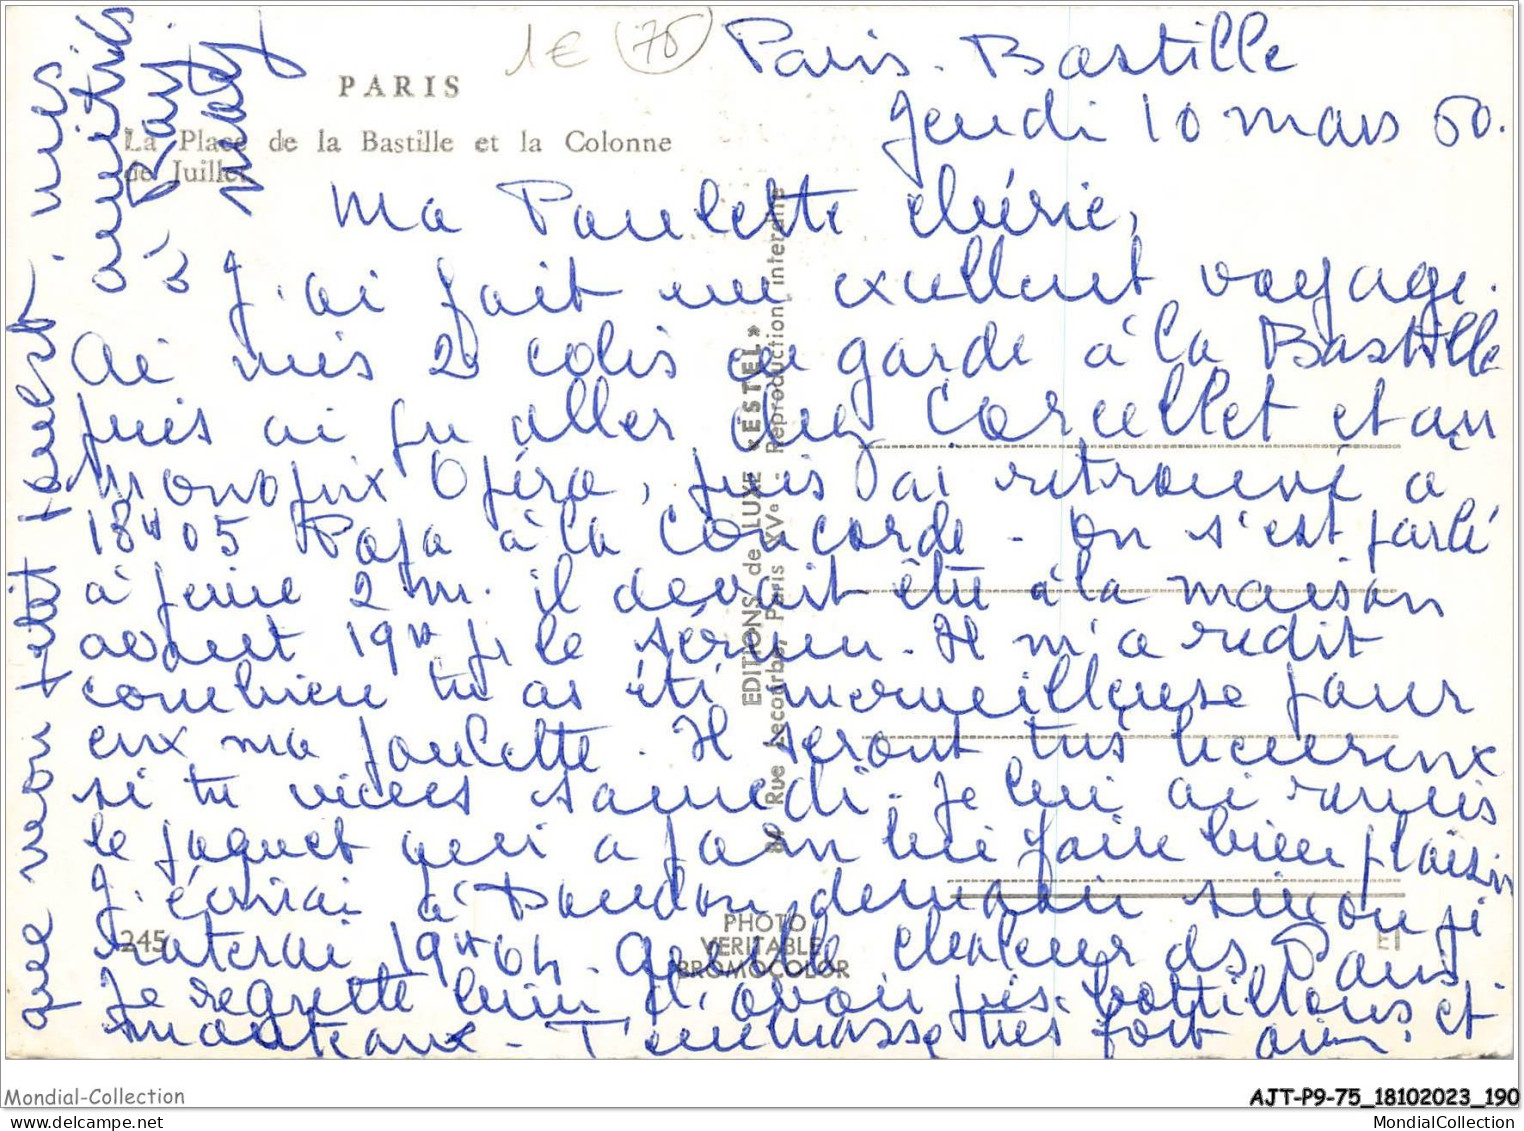 1€ 75
PARIS
La Place de la Bastille et la Colonne
de Juillet
Paris. Bastille
jeudi 10 mars 60.
Ma Paulette chérie,
J'ai fait un excellent voyage.
Ai mis 2 colis en garde à la Bastille
puis ai pu aller chez Corcellet et au
monoprix Opéra, puis ai retrouvé à
18H05 Papa à la Concorde - on s'est parlé
à peine 2 m. il devait être à la maison
avant 19H pr le sérum. Il m'a redit
combien tu as été merveilleuse pour
eux ma Paulette. Il seront très heureux
si tu viens samedi. Je lui ai remis
le paquet qui a pour lui faire bien plaisir
J'écrirai à demain sinon je
raterai 19H04. Quelle chaleur ds Paris.
Je regrette bien d'avoir pris bottillons et
manteaux - T'embrasse très fort ainsi
que mon petit . mes
amitiés
à Ray
Maty
EDITIONS de LUXE "ESTEL"
Rue Lecourbe, Paris XVe - Reproduction interdite
PHOTO
VERITABLE
BROMOCOLOR
245
ET
Mondial-Collection
AJT-P9-75_18102023_190
www.delcampe.net
MondialCollection